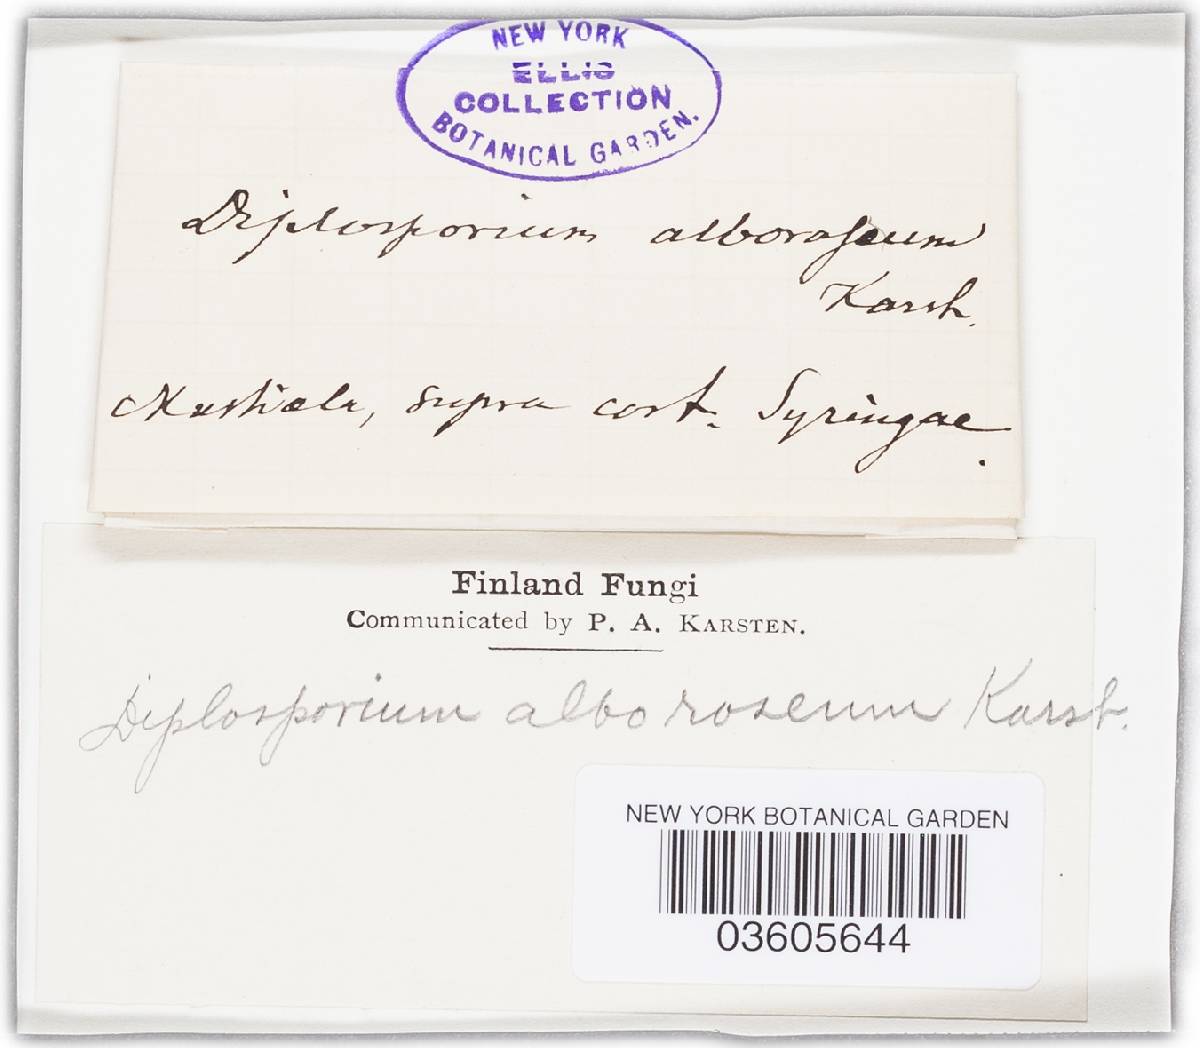 NEW YORK
ELLIS
COLLECTION
BOTANICAL GARDEN.
Diplosporium alboroseum
Karst.
Mustiala, supra cort. Syringae.
Finland Fungi
Communicated by P. A. KARSTEN.
Diplosporium albo roseum Karst.
NEW YORK BOTANICAL GARDEN
03605644